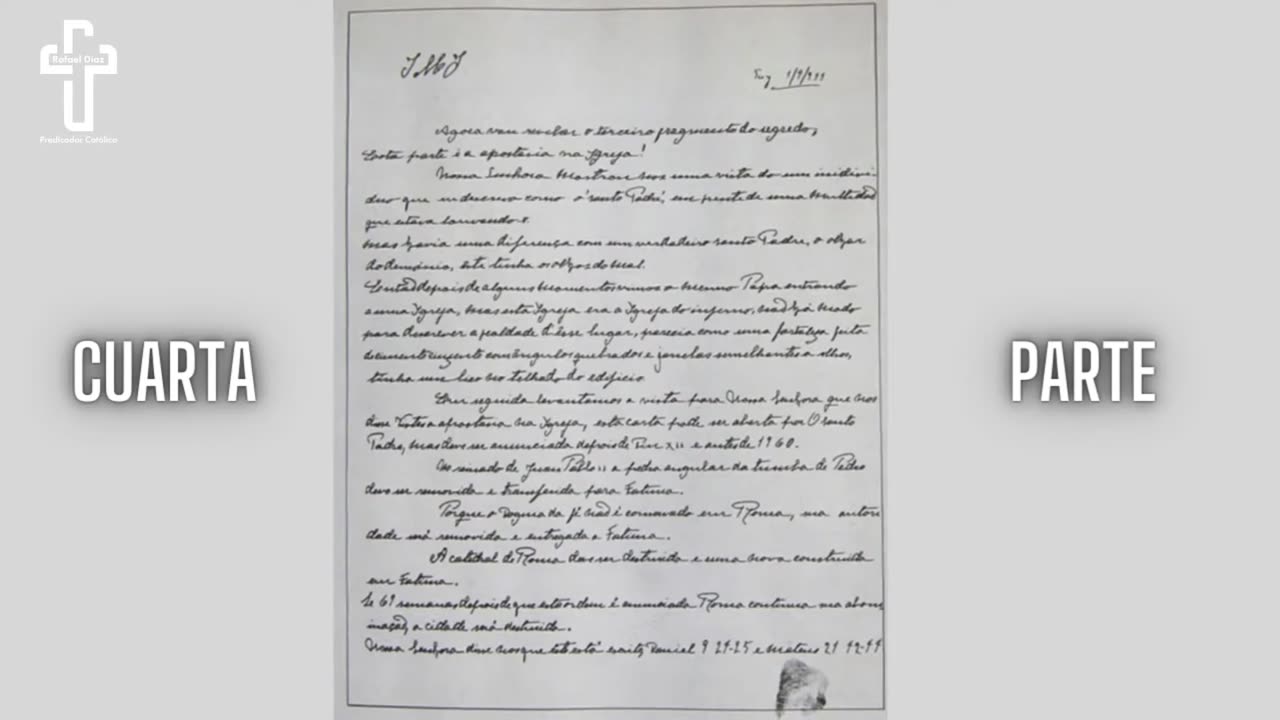 Rafael Díaz
Predicador Católico
CUARTA
PARTE
JMJ
Tuy 1/9/944
Agora vou revelar o terceiro fragmento do segredo;
Esta parte é a apostasia na Igreja!
Nossa Senhora mostrou nos uma vista do um individi-
duo que eu descrevo como o 'santo Padre', em frente de uma multidão
que estava louvando-o.
Mas havia uma diferença com um verdadeiro santo Padre, o olhar
do demónio, este tinha os olhos do mal.
Entaõ depois de alguns momentos vimos o mesmo Papa entrando
a uma Igreja, mas esta Igreja era a Igreja do inferno, naõ há modo
para descrever a fealdade desse lugar, parecia como uma fortaleza feita
de cimento cinzento com ângulos quebrados e janelas semelhantes a olhos,
tinha um bico no telhado do edificio.
Em seguida levantamos a vista para Nossa Senhora que nos
disse Vistes a apostasia na Igreja, esta carta pode ser aberta por O santo
Padre, mas deve ser anunciada depois de Pio XII e antes de 1960.
No reinado de Juan Pablo II a pedra angular da tumba de Pedro
deve ser removida e transferida para Fatima.
Porque o Dogma da fé naõ é conservado em Roma, sua autori-
dade será removida e entregada a Fatima.
A catedral de Roma deve ser destruida e uma nova construida
em Fatima.
Se 69 semanas depois de que esta ordem é anunciada Roma continua sua abom-
inaçaõ, a cidade será destruida.
Nossa Senhora disse nos que isto está escrito, Daniel 9 24-25 e Mateus 21 42-44